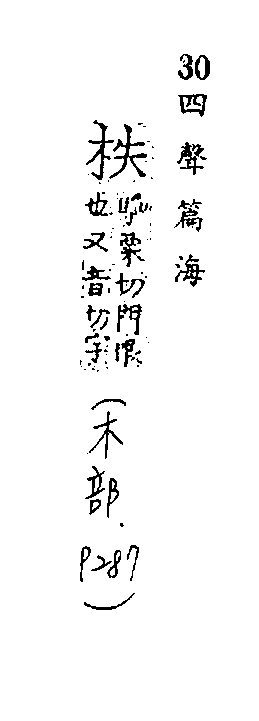 30 四聲篇海
柣 栗切門限
也又音切字
(木部. P287)